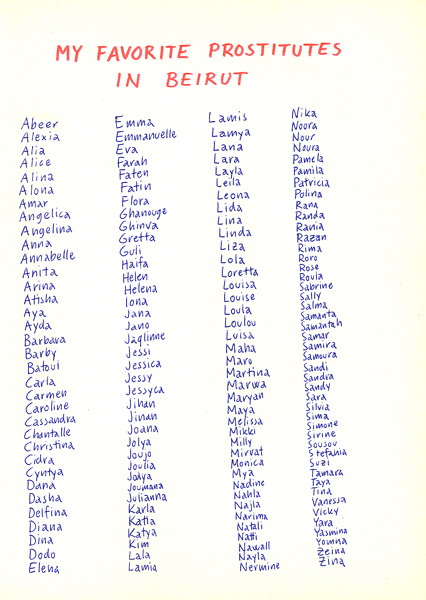 MY FAVORITE PROSTITUTES
IN BEIRUT
Abeer
Alexia
Alia
Alice
Alina
Alona
Amar
Angelica
Angelina
Anna
Annabelle
Anita
Arina
Atisha
Aya
Ayda
Barbara
Barby
Batoul
Carla
Carmen
Caroline
Cassandra
Chantalle
Christina
Cidra
Cyntya
Dana
Dasha
Delfina
Diana
Dina
Dodo
Elena
Emma
Emmanuelle
Eva
Farah
Faten
Fatin
Flora
Ghanouge
Ghinva
Gretta
Guli
Haifa
Helen
Helena
Iona
Jana
Jano
Jaqlinne
Jessi
Jessica
Jessy
Jessyca
Jihan
Jinan
Joana
Jolya
Joujo
Joulia
Joumana
Julianna
Karla
Katia
Katya
Kim
Lala
Lamia
Lamis
Lamya
Lana
Lara
Layla
Leila
Leona
Lida
Lina
Linda
Liza
Lola
Loretta
Louisa
Louise
Loula
Loulou
Luisa
Maha
Maro
Martina
Marwa
Maryan
Maya
Melissa
Mikki
Milly
Mirvat
Monica
Mya
Nadine
Nahla
Najla
Narima
Natali
Natti
Nawall
Nayla
Nermine
Nika
Noora
Nour
Noura
Pamela
Pamila
Patricia
Polina
Rana
Randa
Rania
Razan
Rima
Roro
Rose
Roula
Sabrine
Sally
Salma
Samanta
Samantah
Samar
Samira
Samoura
Sandi
Sandra
Sandy
Sara
Silvia
Sima
Simone
Sirine
Sousou
Stefania
Suzi
Tamara
Taya
Tina
Vanessa
Vicky
Yara
Yasmina
Youmna
Zeina
Zina